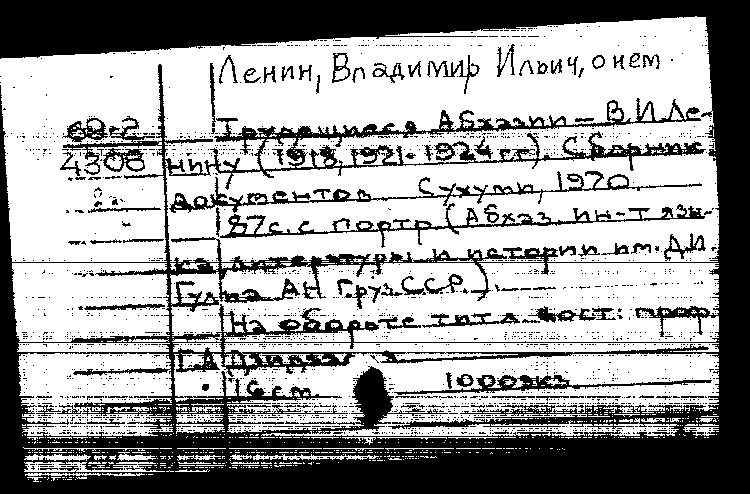 Ленин, Владимир Ильич, о нем.
68-2
Трудящиеся Абхазии — В.И. Ле-
4308 нину (1918, 1921-1924 гг.). Сборник
документов. Сухуми, 1970.
87с. с портр. (Абхаз. ин-т язы-
ка, литературы и истории им. Д.И.
Гулиа АН Груз.ССР.).
На обороте тит. л. сост.: проф.
Г.А. Дзидзария
16 см. 1000экз.